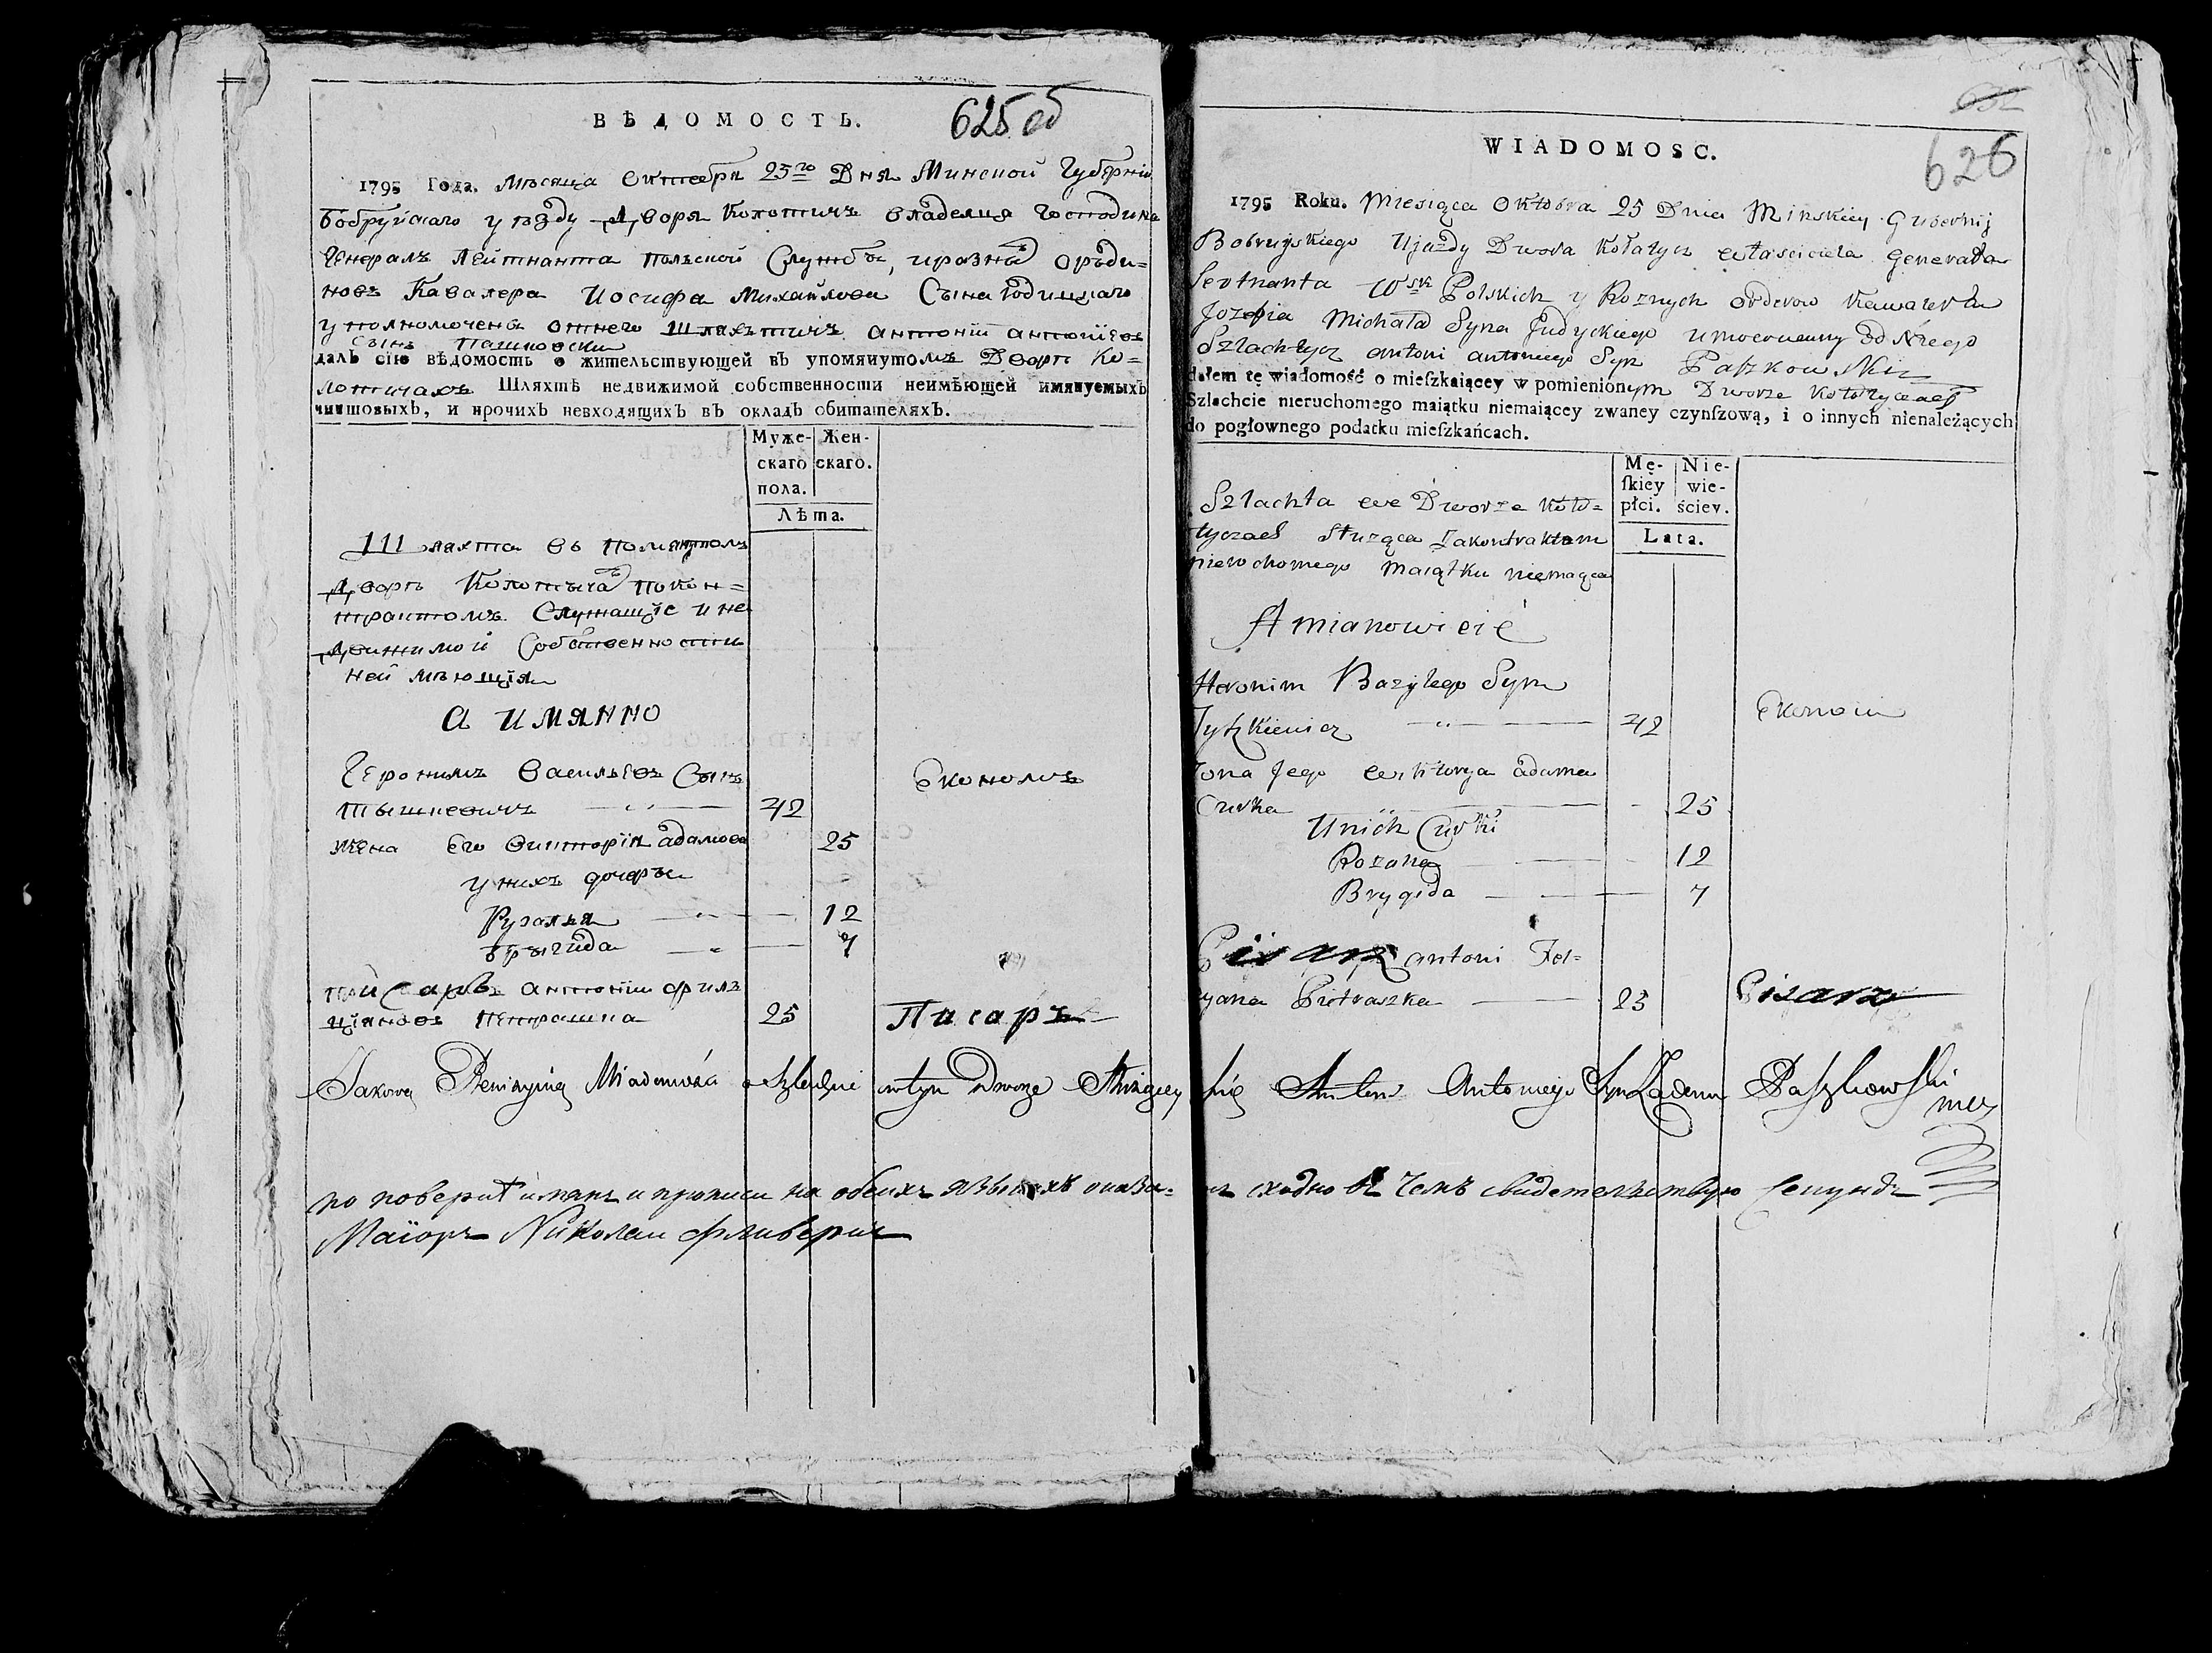 ВѢДОМОСТЬ.
625 об
1795 Года. мѣсяца Октебря 25го Дня Минской Губерніи
Бобруйскаго уѣзду Двора Колотичъ владелца Господина
Генералъ Лейтнанта полской Службы, и разныхъ орѣди=
новъ Кавалера Иосифа Михайлова Сына Юдицкаго
уполномоченъ отнего Шляхътичъ антоніи антоніевъ
Сынъ Пашковски
далъ сїю вѣдомость о жительствующей въ упомянутомъ Дворѣ Ко=
лотичахъ Шляхтѣ недвижимой собственности неимѣющей имянуемыхъ
чиншовыхъ, и прочихъ невходящихъ въ окладъ обитателяхъ.
Муже- Жен-
скаго скаго.
пола.
Лѣта.
Шляхта въ помянутомъ
Дворѣ Колотычахъ покон=
трактомъ Служащіе и не
Движимой Собственности
ней мѣющія
А ИМЯННО
Геронимъ Васильевъ Сынъ
Тышкевичъ 42 Економъ
жена Его Викторїя адамова 25
у нихъ дочеры
Рузалья 12
Брыгида 7
писаръ антоніи фили
ціяновъ Петрашка 25 Писаръ
WIADOMOSC.
626
1795 Roku. Miesiąca Oktobra 25 Dnia Minskiey Gubernij
Bobruyskiego Ujazdy Dwora Kołatycz właściciela Generała
Leytnanta Wsk Polskich y Roznych orderow Kawalera
Jozefia Michała Syna Judyckiego umocowany od Niego
Szlachtycz antoni antoniego Syn Paszkowski
dałem tę wiadomość o mieſzkaiącey w pomienionym Dworze Kołotyczach
Szlachcie nieruchomego maiątku niemaiącey zwaney czynſzową, i o innych nienależących
do pogłownego podatku mieſzkańcach.
Mę- Nie-
ſkiey wie-
płci. ściey.
Lata.
Szlachta we Dworze Koło=
tyczach Służąca zakontraktem
nieruchomego Maiątku niemaiąca
Amianowicie
Heronim Bazylego Syn
Tyſzkiewicz 42 Ekonom
Zona Jego Wiktorya adama
Curka 25
Unich Curki
Rozalia 12
Brygida 7
Pisarz antoni Fel=
cyana Pietraszka 25 Pisarz
Takową Rewizyiną Wiadomość o Szlachcie wtym Dworze Służącey się Antoni Antoniego Syn Paszkowski
по поверки имянъ и прописи на обеихъ языкахъ оказа= сходно въ чемъ свидетелствую Секундъ
Маіоръ Николаи